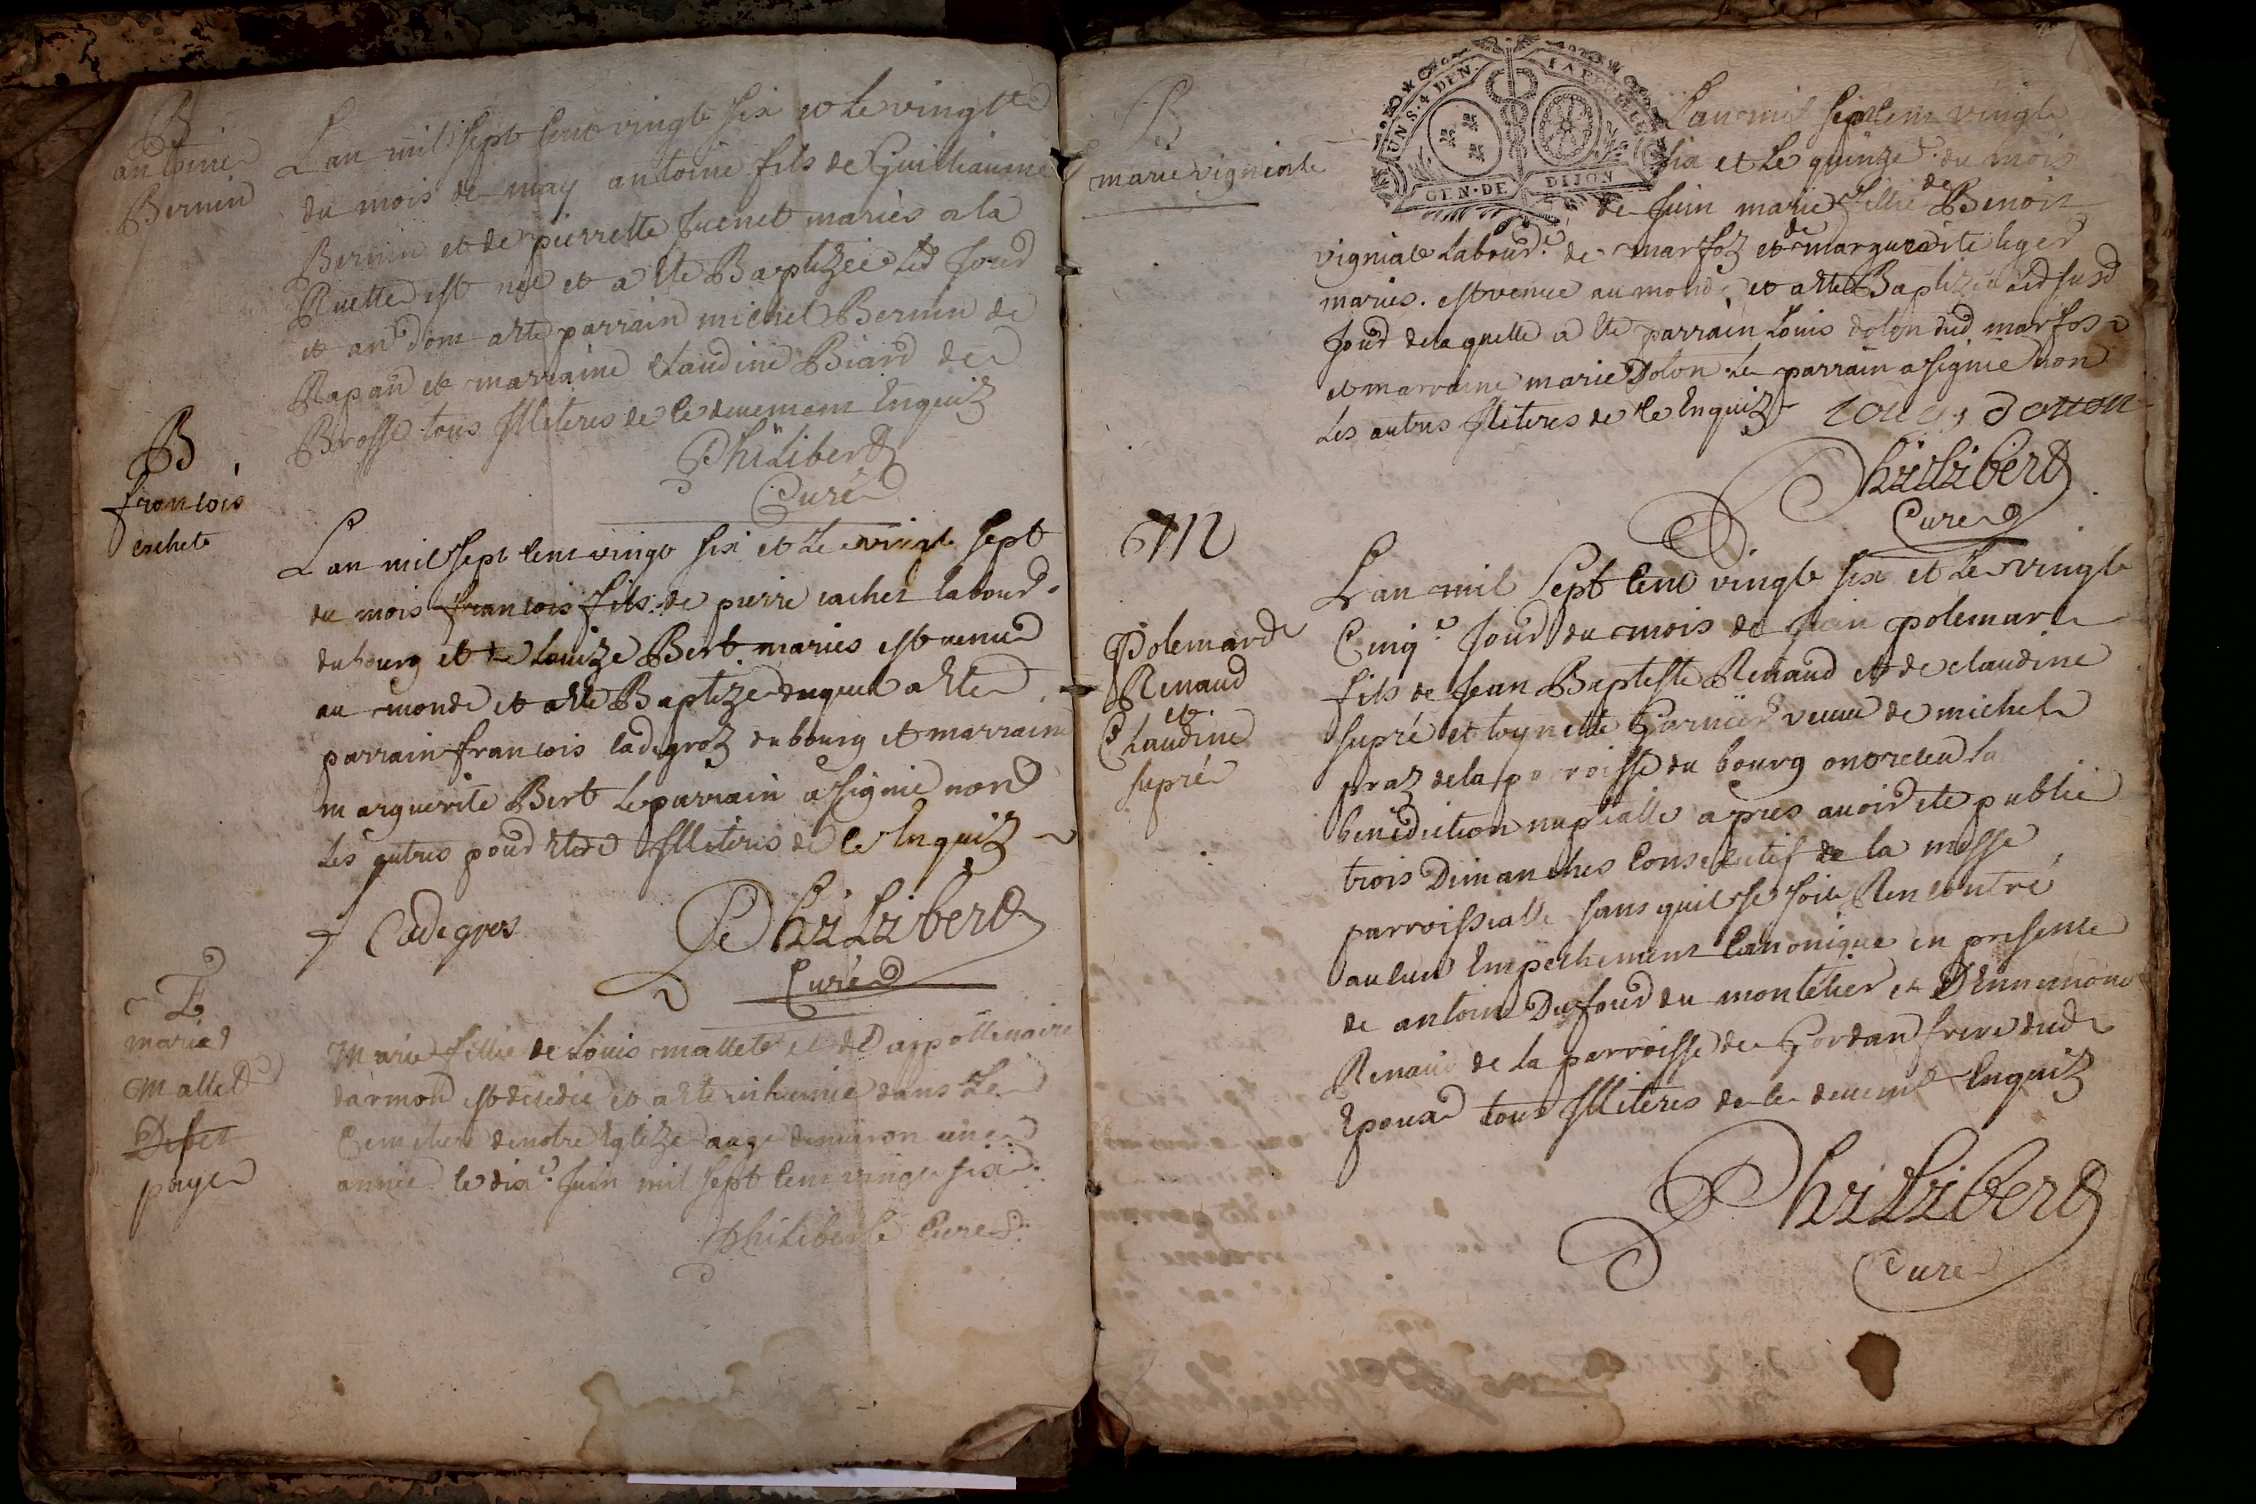 B
antoine
Bernin
Lan mil sept cent vingt six et le vingt
du mois de may antoine fils de Guilliaume
Bernin et de pierrette Juenet maries a la
Ruette est né et a ete Baptizée led Jour
et an dont a ete parrain michel Bernin de
Rapan et marraine Claudine Biard de
Brosse tous Illiteres de ce duement Enquiz
Philibert
Curé
B
francois
cachet
Lan mil sept cent vingt six et le vingt sept
du mois francois fils de pierre cachet labour
du bourg et de Louize Bert maries est venu
au monde et a ete Baptizé duquel a ete
parrain francois cadegroz du bourg et marraine
marguerite Bert le parrain a signié non
les autres pour etre Illiteres de ce Enquiz
f Cadegros
Philibert
Curé
E
marie
Mallet
Defet
paye
Marie fillie de Louis mallet et de appollenaire
darmon est decedée et a ete inhumée dans le
Cemetiere de notre Eglize aagé denviron une
année le dix Juin mil sept cent vingt six
Philibert Curé
B
marie vigniate
UN.S.4 DEN. LA FEUILLE
GEN.DE DIJON
Lan mil sept cent vingt
six et le quinze du mois
de Juin marie fillie de Benoit
vigniate Labour de marfoz et de marguerite leger
maries est venue au monde et a ete Baptizée led susd
Jour de laquelle a ete parrain Louis dolon dud marfos
et marraine marie Dolon le parrain a signié non
les autres Illiteres de ce Enquiz Louis dollon
Philibert
Curé
M
Polemard
Renaud
et
Claudine
supré
Lan mil sept cent vingt six et le vingt
Cinq Jour du mois de Juin polemard
fils de Jean Baptiste Renaud et de claudine
supré et toynette Garnier veuve de michel
praz de la parroisse du bourg ont receu la
benediction nuptialle apres avoir ete publié
trois Dimanches Consecutif de la messe
parroissialle sans quil se soit Rencontré
aucun Empechement Canonique en presence
de antoine Dufour du montelier et DEnnemond
Renaud de la parroisse de Gordan frere dud
Epoux tous Illiteres de ce duement Enquiz
Philibert
Curé